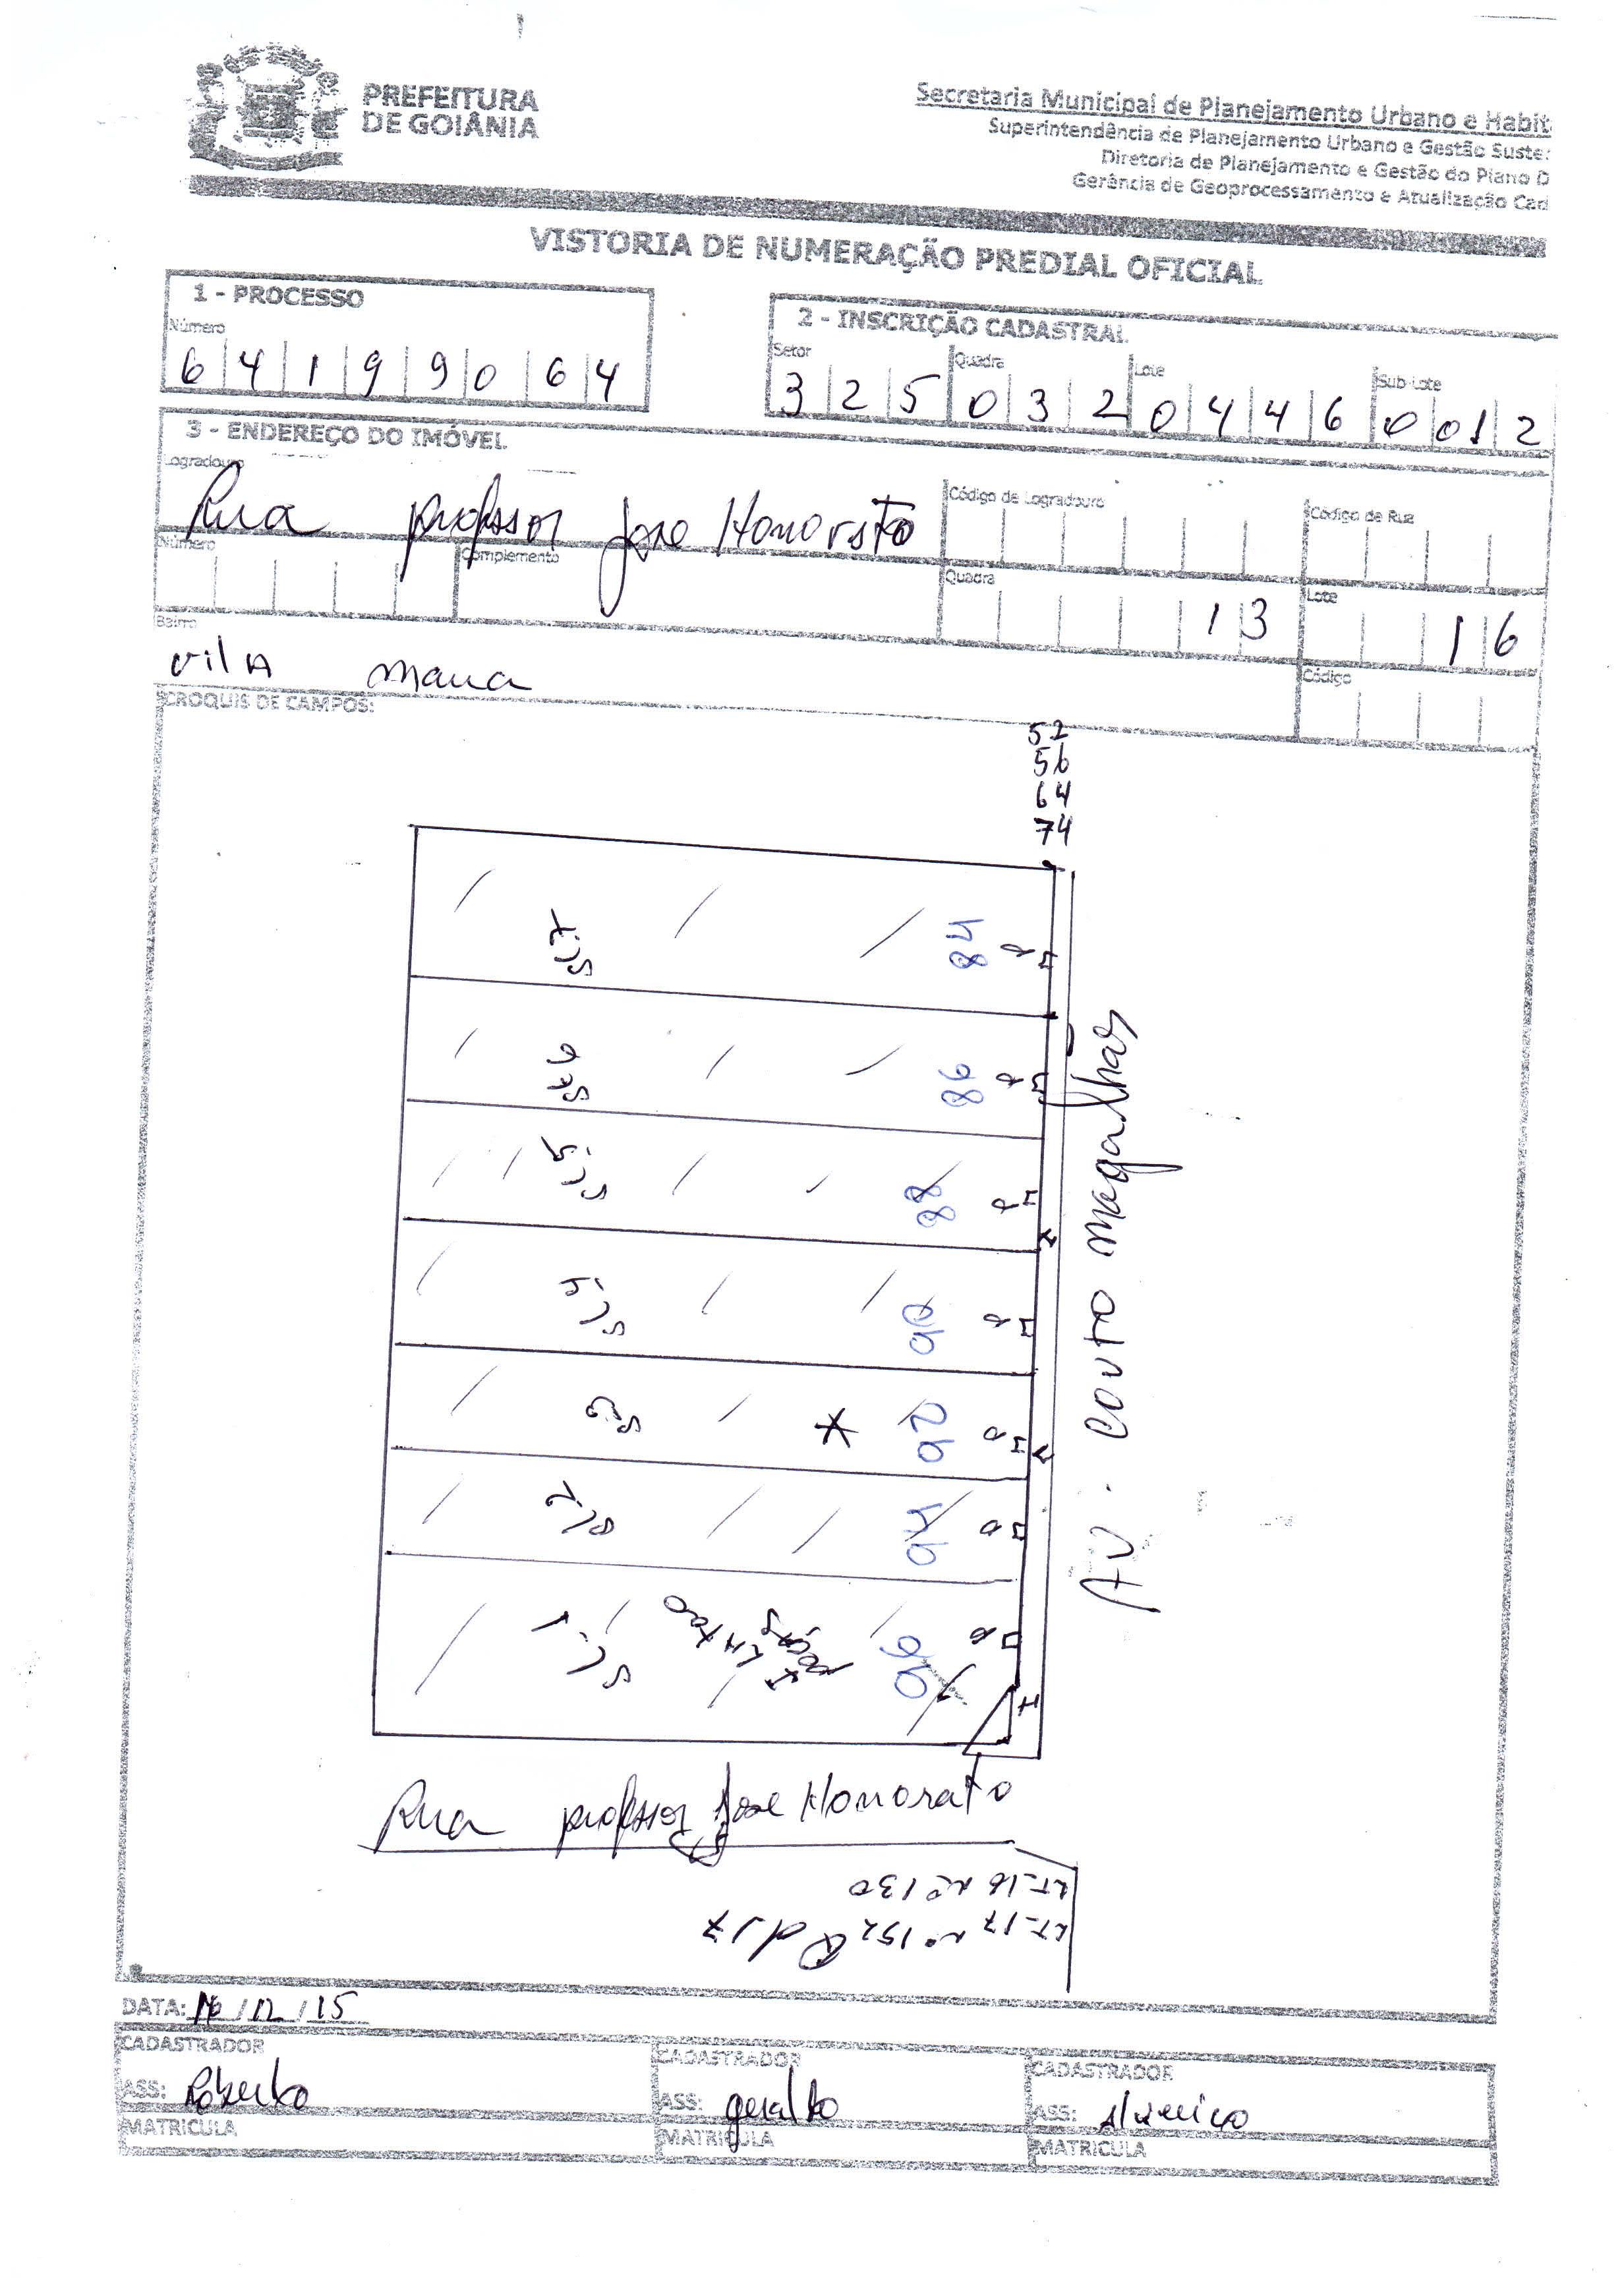 PREFEITURA
DE GOIÂNIA
Secretaria Municipal de Planejamento Urbano e Habit
Superintendência de Planejamento Urbano e Gestão Suste
Diretoria de Planejamento e Gestão do Plano D
Gerência de Geoprocessamento e Atualização Cad
VISTORIA DE NUMERAÇÃO PREDIAL OFICIAL
1 - PROCESSO
Número
6 4 1 9 9 0 6 4
2 - INSCRIÇÃO CADASTRAL
Setor Quadra Lote Sub-Lote
3 2 5 0 3 2 0 4 4 6 0 0 1 2
3 - ENDEREÇO DO IMÓVEL
Logradouro
Rua professor Jose Honorato
Código de Logradouro
Código de Rua
Número
Complemento
Quadra
13
Lote
16
Bairro
vila maua
Código
CROQUIS DE CAMPOS:
52
56
64
74
84
86
88
90
92
94
96
Av. Couto Magalhas
Rua professor Jose Honorato
LT-16 nº 130
LT-17 nº 152 Qd 17
DATA: 16/12/15
CADASTRADOR
ASS: Roberto
MATRICULA
CADASTRADOR
ASS: geraldo
MATRICULA
CADASTRADOR
ASS:
MATRICULA